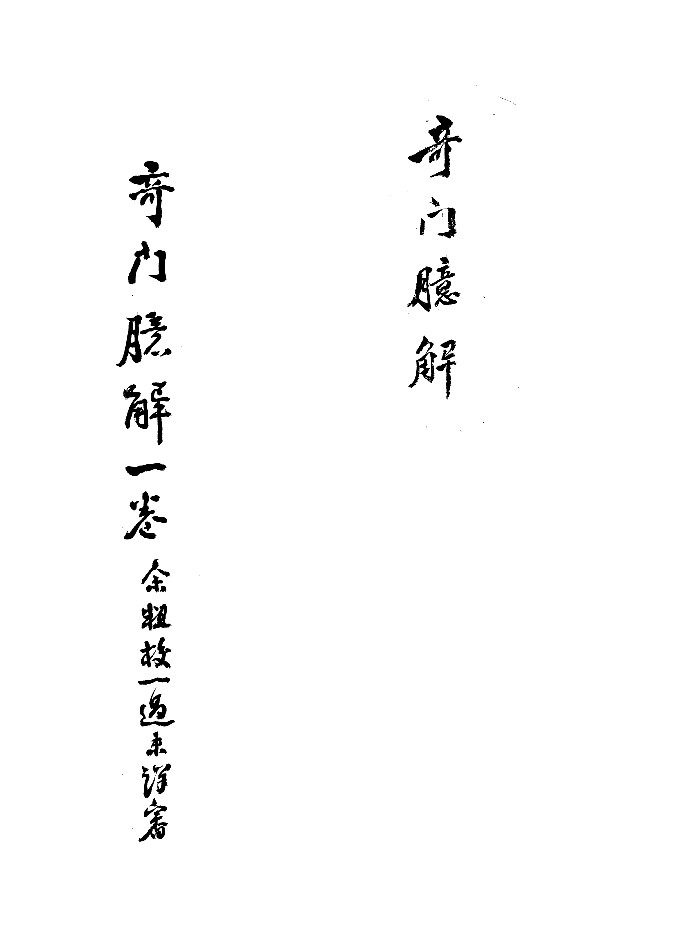 奇门臆解
奇门臆解一卷 余粗校一過未詳審